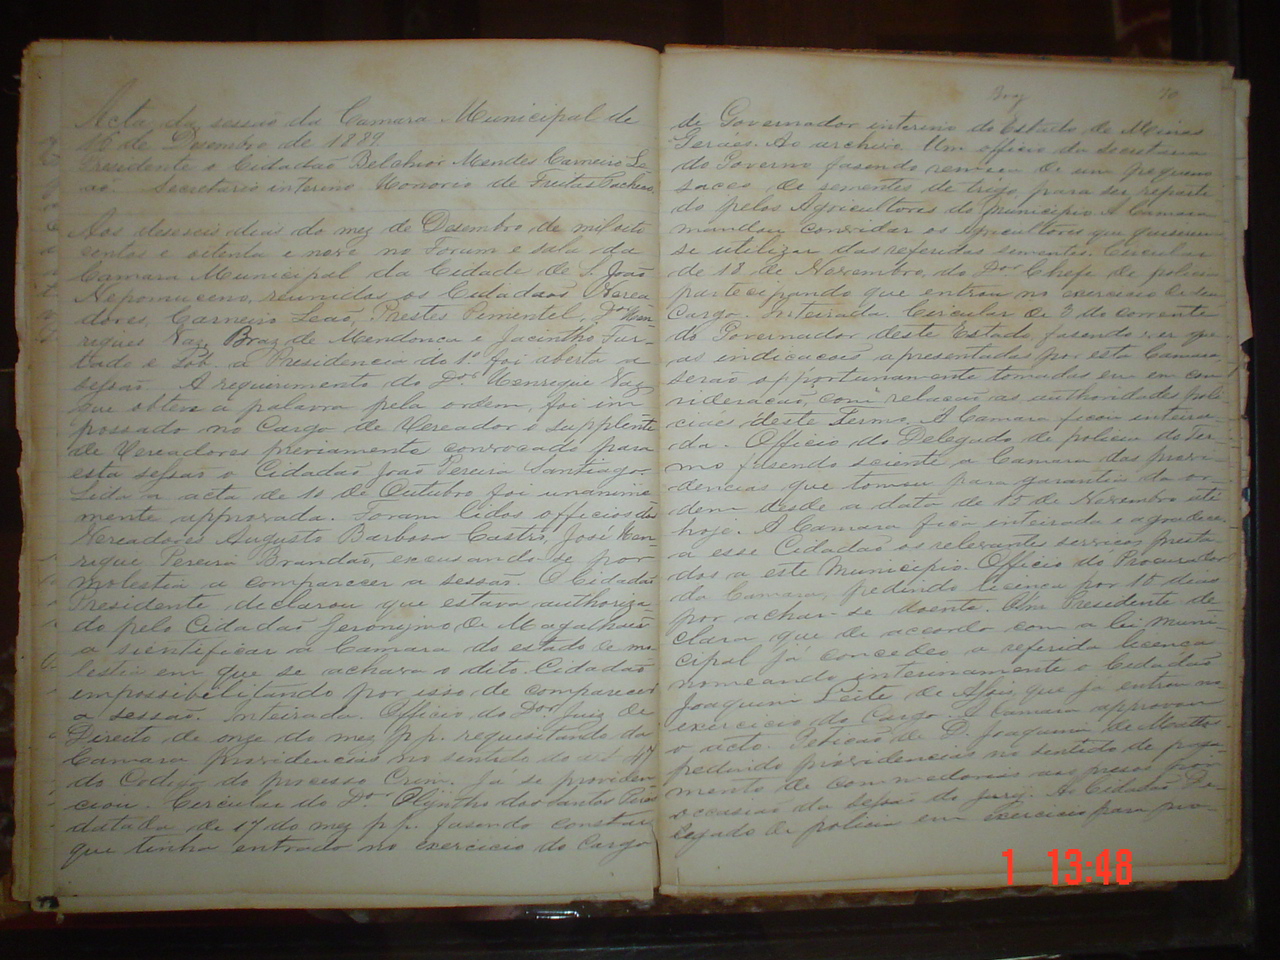 Acta da sessão da Camara Municipal de
16 de Desembro de 1889
Presidente o Cidadão Belchior Mendes Carneiro Le-
ão. Secretario interino Honorio de Freitas Pacheco.
Aos deseseis dias do mez de Desembro de mil oito
centos e oitenta e nove no Forum e sala da
Camara Municipal da Cidade de S. João
Nepomuceno, reunidos os Cidadãos Verea
dores, Carneiro Leão, Prestes Pimentel, Dor Hen-
riques Vaz, Braz de Mendonca e Jacintho Fur-
tado e sob a Presidencia do 1º foi aberta a
sessão. A requerimento do Dor Henrique Vaz
que obteve a palavra pela ordem, foi im
possado no Cargo de Vereador o supplente
de Vereadores previamente convocado para
esta sessão o Cidadão João Pereira Santiago
Lida a acta de 10 de Outubro foi unanime
mente approvada. Foram lidos officios dos
Vereadores Augusto Barbosa Castro, José Hen-
rique Pereira Brandão, excusando-se por
molestia a comparecer a sessão. O Cidadão
Presidente declarou que estava authoriza
do pelo Cidadão Jeronymo de Magalhães
a scientificar a Camara do estado de mo
lestia em que se achava o dito Cidadão
impossibelitando por isso de comparecer
a sessão. Inteirada. Officio do Dor Juiz de
Direito de onze do mez p.p. requisitando da
Camara providencias no sentido do art 47
do Codigo do processo Crim. Já se providen
ciou. Circular do Dor Olyntho dos Santos Pires
datada de 17 do mez p.p. fasendo constar
que tinha entrado no exercicio do Cargo
70
de Governador interino do Estado de Minas
Geráes. Ao archivo. Um officio da secretaria
do Governo fasendo remessa de um pequeno
sacco de sementes de trigo para ser reparti
do pelos Agricultores do municipio A Camara
mandou convidar os agricultores que quiserem
se utilizar das referidas sementes. Circular
de 18 de Novembro, do Dor Chefe de policia
partecipando que entrou no exercicio de seu
Cargo. Inteirada. Circular de 3 do corrente
do Governador deste Estado, fasendo ver que
as indicacões apresentadas por esta Camara
serão opportunamente tomadas em con
sideracão, com relacão as authoridades Poli
ciaes deste Termo. A Camara ficou inteira
da. Officio do Delegado de policia do Ter-
mo fasendo sciente a Camara das provi-
dencias que tomou para garantia da or-
dem desde a data de 15 de Novembro até
hoje. A Camara fica inteirada e agradece
a esse Cidadão os relevantes serviços presta
dos a este Municipio. Officio do Procurador
da Camara, pedindo licenca por 10 dias
por achar-se doente. O Presidente de-
clara que de accordo com a lei muni-
cipal já concedeo a referida licenca
nomeando interinamente o Cidadão
Joaquim Leite de Assis, que já entrou no
exercicio do Cargo. A Camara approvou
o acto. Petição de D. Joaquina de Mattos
pedindo providencias no sentido de paga-
mento de commedorias aos presos por
occasião da sessão do jury. Ao Cidadão De-
legado de policia em exercicio para pro-
1 13:48